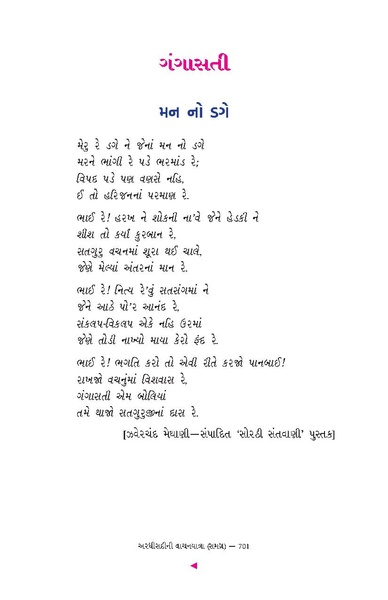 ગંગાસતી
મન નો ડગે
મેરુ રે ડગે ને જેનાં મન નો ડગે
મરને ભાંગી રે પડે ભરમાંડ રે;
વિપદ પડે પણ વણસે નહિ,
ઈ તો હરિજનનાં પરમાણ રે.
ભાઈ રે! હરખ ને શોકની ના'વે જેને હેડકી ને
શીશ તો કર્યાં કુરબાન રે,
સતગુરુ વચનમાં શૂરા થઈ ચાલે,
જેણે મેલ્યાં અંતરનાં માન રે.
ભાઈ રે! નિત્ય રે'વું સતસંગમાં ને
જેને આઠે પો'ર આનંદ રે.
સંકલપ-વિકલપ એકે નહિ ઉરમાં
જેણે તોડી નાખ્યો માયા કેરો ફંદ રે.
ભાઈ રે! ભગતિ કરો તો એવી રીતે કરજો પાનબાઈ!
રાખજો વચનુંમાં વિશવાસ રે,
ગંગાસતી એમ બોલિયાં
તમે થાજો સતગુરુજીનાં દાસ રે.
[ઝવેરચંદ મેઘાણી—સંપાદિત ‘સોરઠી સંતવાણી’ પુસ્તક]
અરધીસદીની વાચનયાત્રા (સમગ્ર) — 701